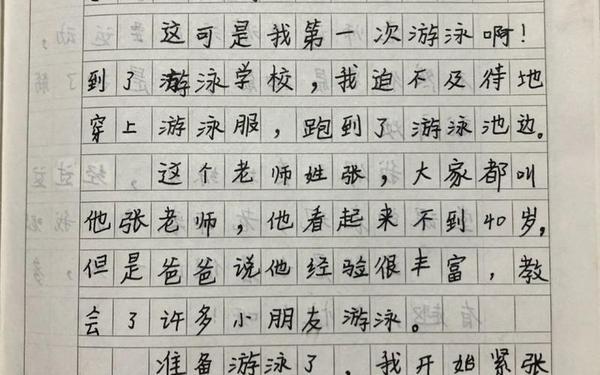 这可是我第一次游泳啊！
到了游泳学校，我迫不及待地
穿上游泳服，跑到了游泳池边。
这个老师姓张，大家都叫
他张老师，他看起来不到40岁，
但是爸爸说他经验很丰富，教
会了许多小朋友游泳。
准备游泳了，我开始紧张